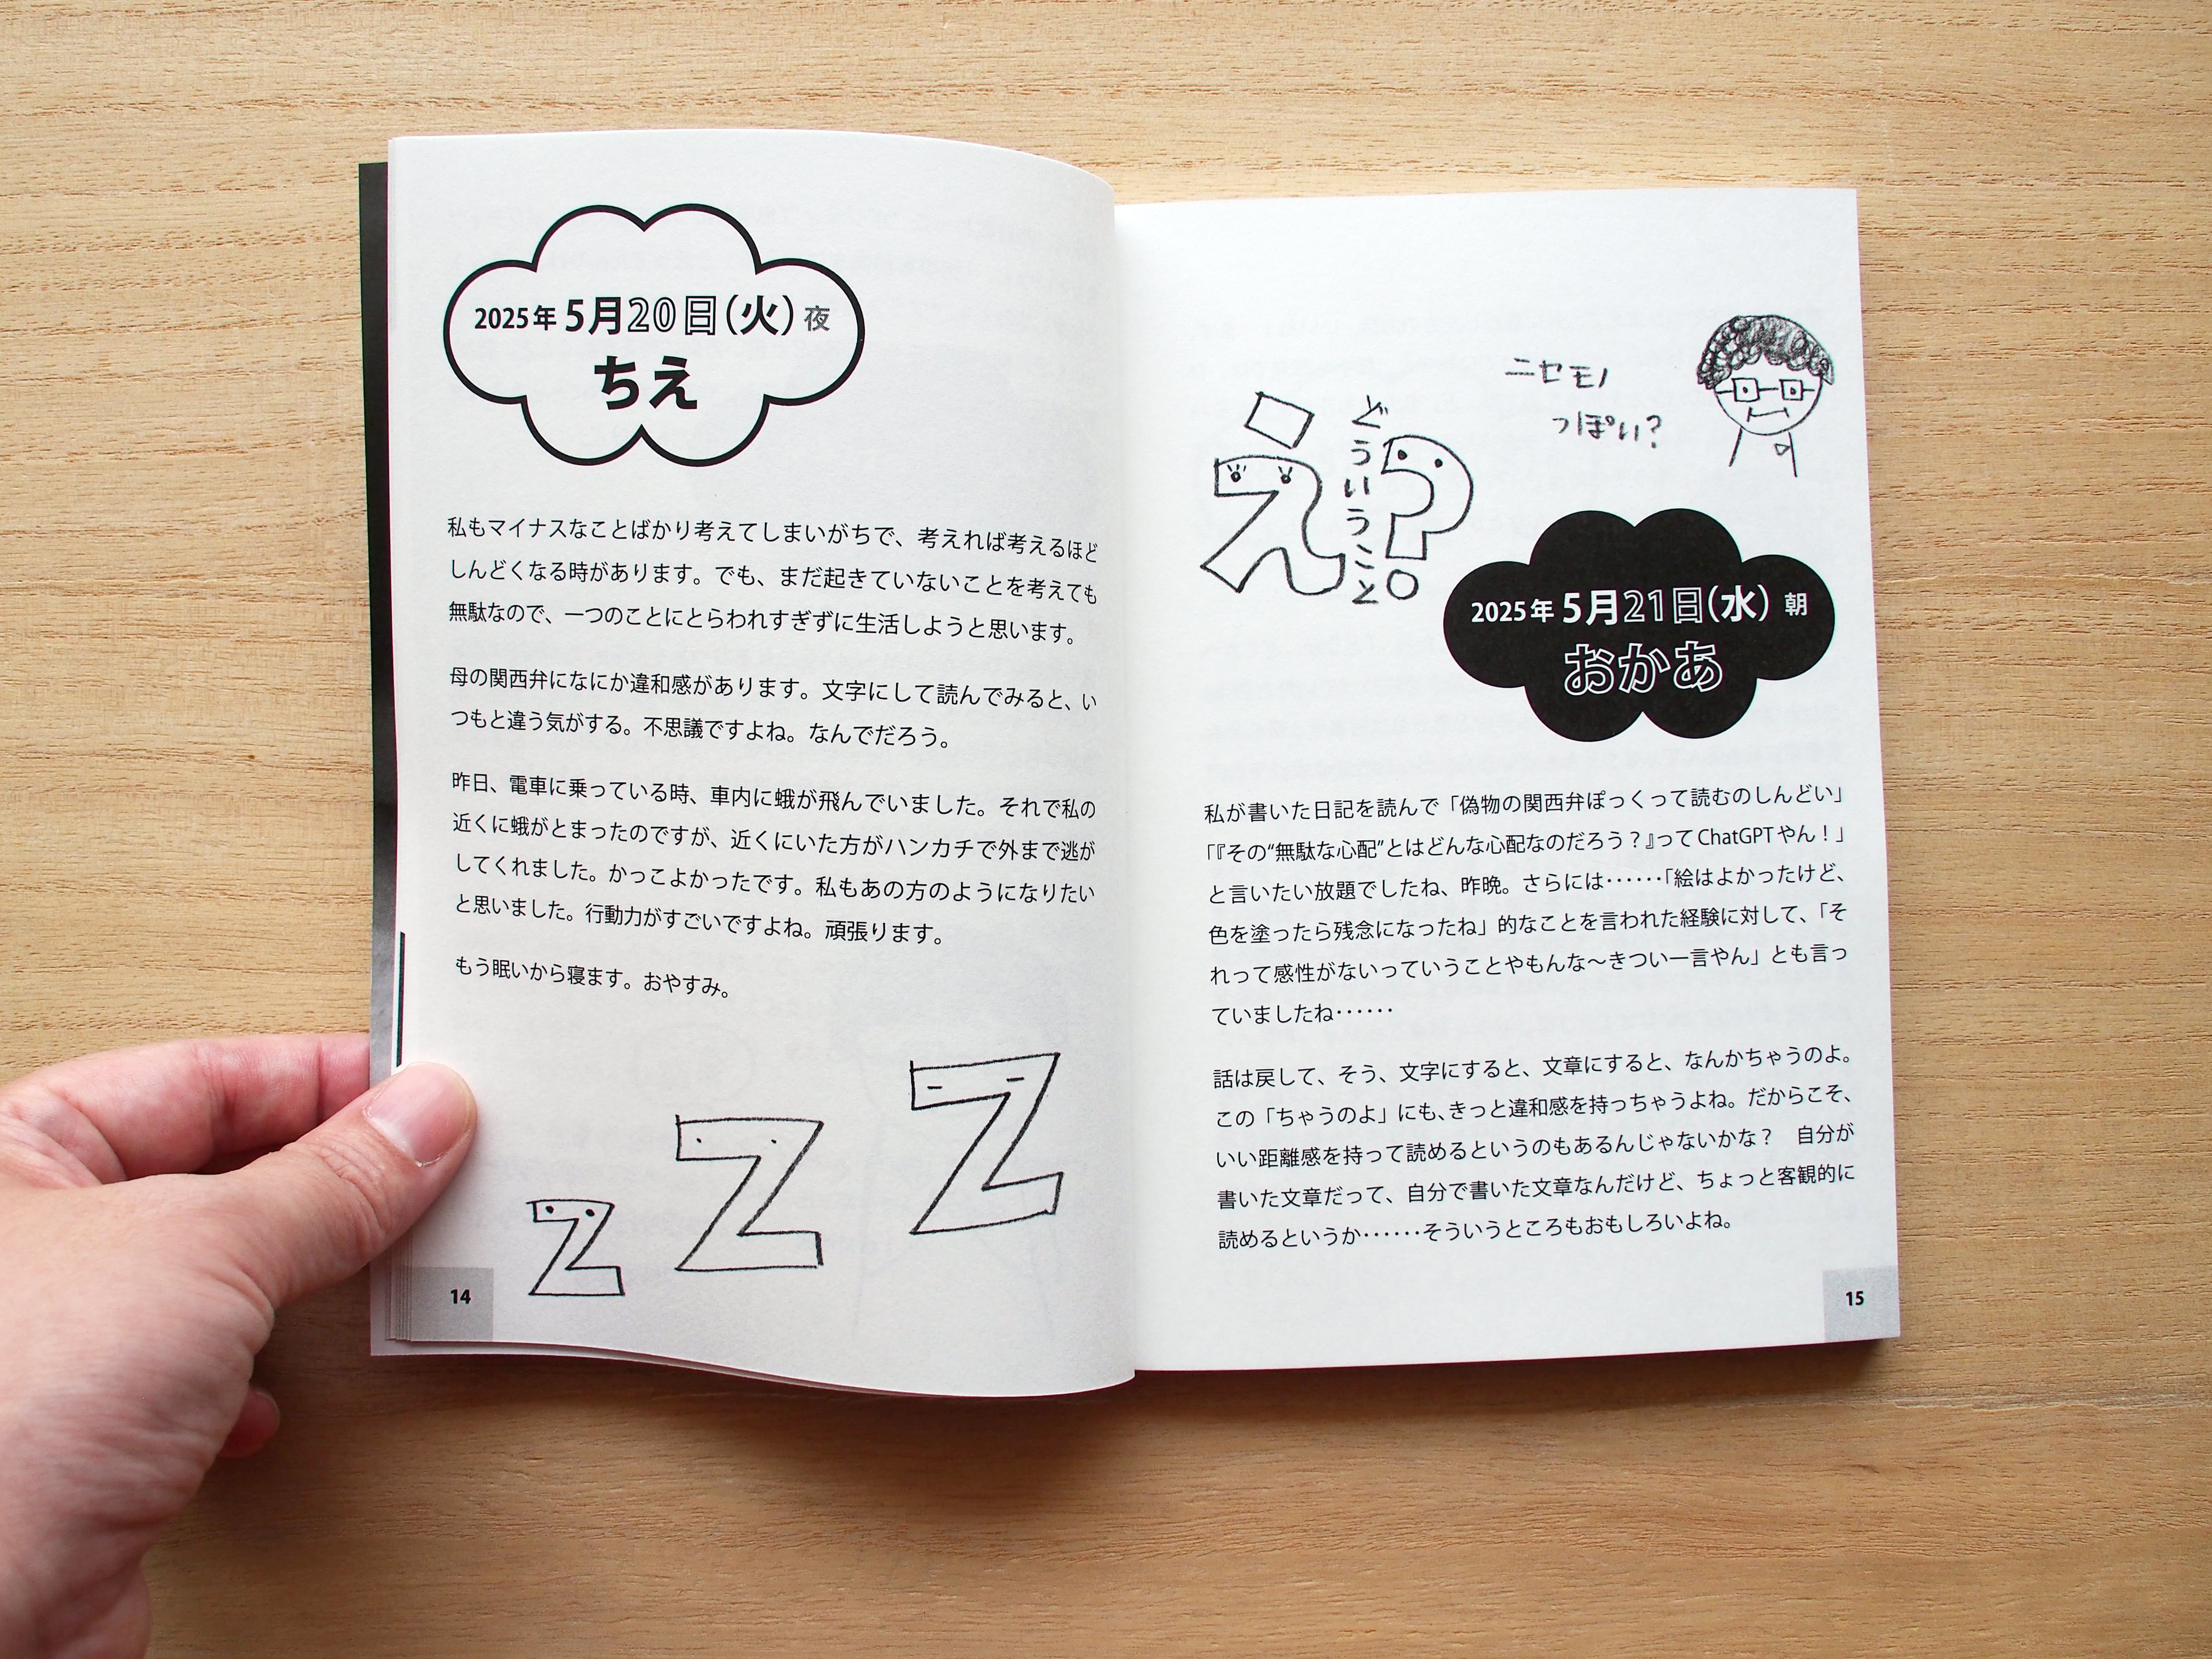 2025年 5月20日(火) 夜
ちえ
私もマイナスなことばかり考えてしまいがちで、考えれば考えるほど
しんどくなる時があります。でも、まだ起きていないことを考えても
無駄なので、一つのことにとらわれすぎずに生活しようと思います。
母の関西弁になにか違和感があります。文字にして読んでみると、い
つもと違う気がする。不思議ですよね。なんでだろう。
昨日、電車に乗っている時、車内に蛾が飛んでいました。それで私の
近くに蛾がとまったのですが、近くにいた方がハンカチで外まで逃が
してくれました。かっこよかったです。私もあの方のようになりたい
と思いました。行動力がすごいですよね。頑張ります。
もう眠いから寝ます。おやすみ。
Z Z Z
14
ニセモノ
っぽい?
え?
どういうこと
2025年 5月21日(水) 朝
おかあ
私が書いた日記を読んで「偽物の関西弁ぽっくって読むのしんどい」
「『その“無駄な心配”とはどんな心配なのだろう?』って ChatGPT やん!」
と言いたい放題でしたね、昨晩。さらには……「絵はよかったけど、
色を塗ったら残念になったね」的なことを言われた経験に対して、「そ
れって感性がないっていうことやもんな〜きつい一言やん」とも言っ
ていましたね……
話は戻して、そう、文字にすると、文章にすると、なんかちゃうのよ。
この「ちゃうのよ」にも、きっと違和感を持っちゃうよね。だからこそ、
いい距離感を持って読めるというのもあるんじゃないかな? 自分が
書いた文章だって、自分で書いた文章なんだけど、ちょっと客観的に
読めるというか……そういうところもおもしろいよね。
15